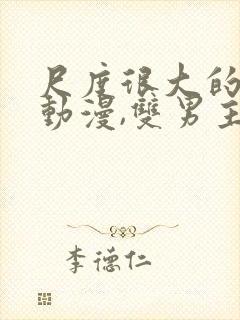 尺度很大的
動漫,雙男主
李德仁